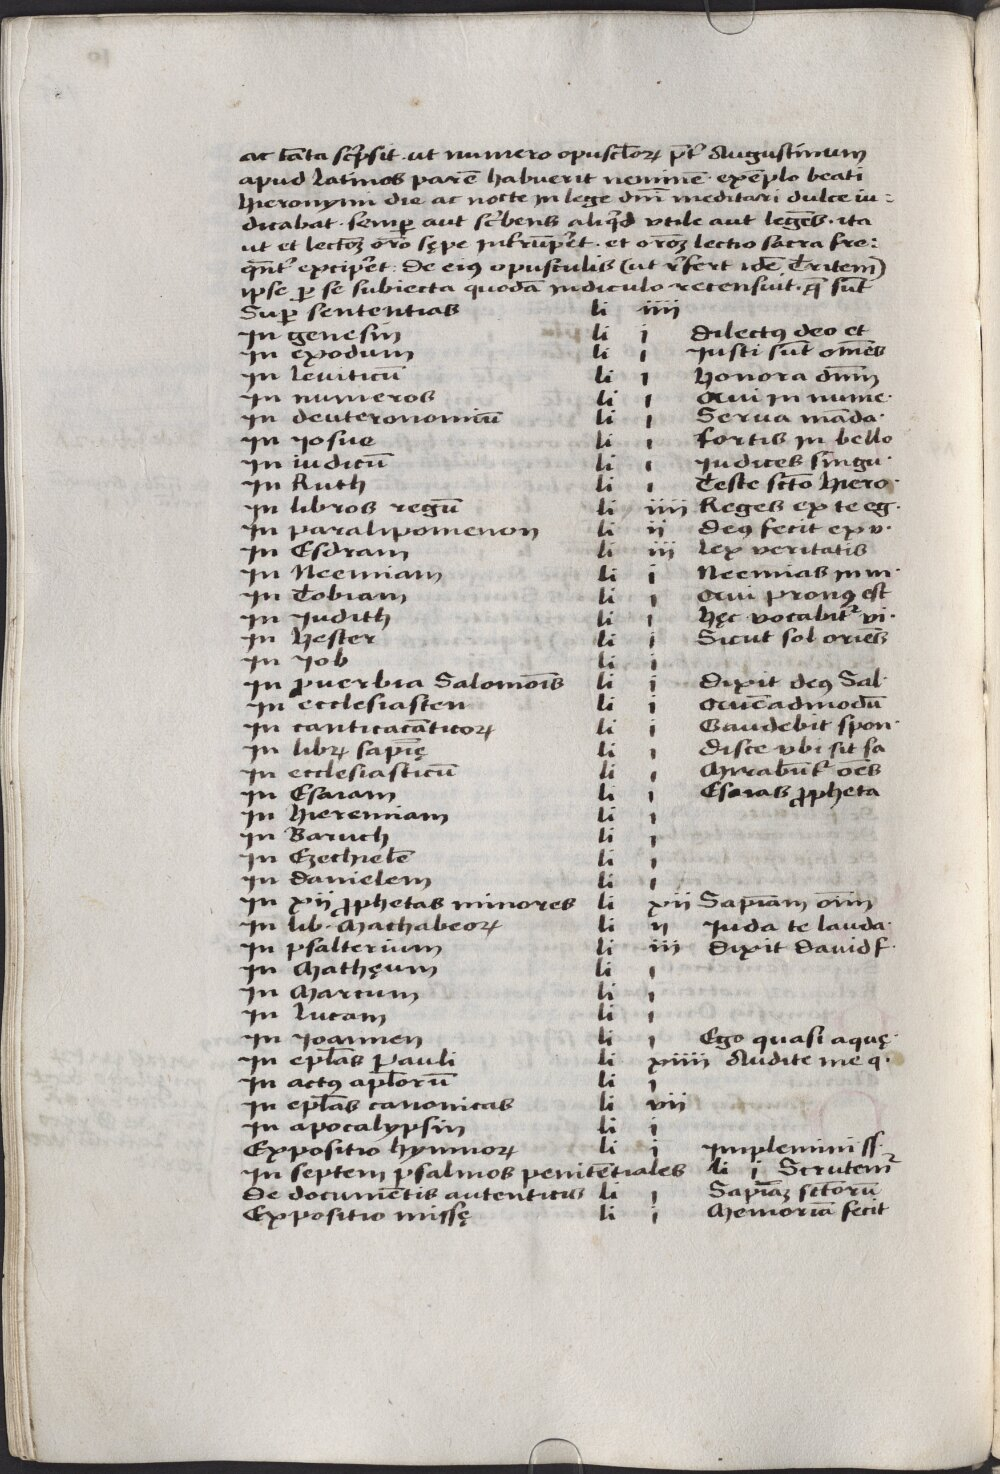 ac tãta scp̃sit · ut numero opuscloꝝ p̃t Augustinum
apud latinos parẽ habuerit neminẽ · exẽplo beati
Hieronymi die ac nocte in lege dnĩ meditari dulce iu=
dicabat · semꝑ aut scbens aliqd vtile aut legẽs · ita
ut et lectoẽ or̃o sępe inťrũpet · et oroẽ lectio sacra fre=
qñt excipet : De eiꝰ opusculis (ut r̃fert idẽ Tritem̃)
ipse ꝑ se subiecta quodã indiculo recensuit · q̃ sũt
Suꝑ sententias li iiii
In genesin li i Dilectꝰ deo et
In exodum li i Iusti sũt om̃es
In leviticũ li i Honora dnm̃
In numeros li i Qui in nume·
In deuteronomiũ li i Serua mãda·
In Iosue li i Fortis in bello
In iudicũ li i Iudices singu·
In Ruth li i Teste scto Hiero·
In libros regũ li iiii Reges ex te eg·
In paralipomenon li ii Deꝰ fecit ex v·
In Esdram li iii Lex veritatis
In Neemiam li i Neemias in m·
In Tobiam li i Qui pronꝰ est
In Iudith li i Hęc vocabit͛ vi·
In Hester li i Sicut sol oriẽs
In Iob li i
In ꝓuerbia Salomõis li i Dixit deꝰ Sal·
In ecclesiasten li i Quẽadmodũ
In canticacãticoꝝ li i Gaudebit spon·
In libꝝ sapiẽ li i Disce vbi sit sa
In ecclesiasticũ li i Mirabũt͛ oẽs
In Esaiam li i Esaias ꝓpheta
In Hieremiam li i
In Baruch li i
In Ezechielẽ li i
In Danielem li i
In xii ꝓphetas minores li xii Sapiãm oim̃
In lib· Machabeoꝝ li ii Iuda te lauda·
In psalterium li iii Dixit David f·
In Mathęum li i
In Marcum li i
In Lucam li i
In Ioannen li i Ego quasi aquę·
In epl̃as Pauli li xiiii Audite me q·
In actꝰ apl̃orũ li i
In epl̃as canonicas li vii
In apocalypsin li i
Expositio hymnoꝝ li i Implemini ss·
In septem psalmos penitẽtiales li i Scrutem͛
De documẽtis autenticis li i Sapiãʒ sctorũ
Expositio missę li i Memoriã fecit